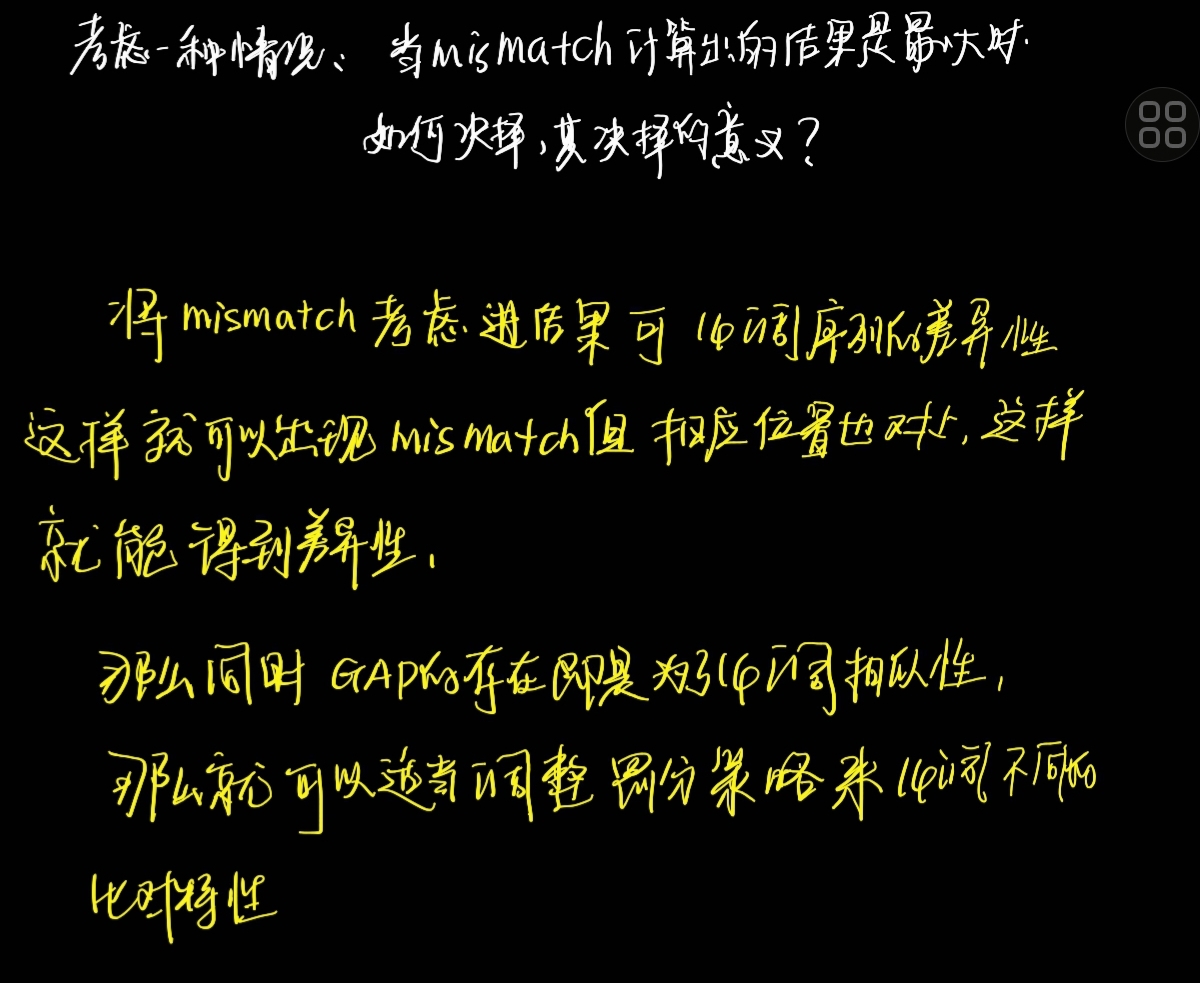 考虑一种情况、当mismatch计算出的结果是最大时.
如何决择,其决择的意义?
将mismatch考虑进结果可强调序列的差异性
这样就可以出现mismatch但相应位置也对上,这样
就能得到差异性,
那么同时GAP的存在即是为了强调相似性,
那么就可以适当调整罚分策略来强调不同的
比对特性